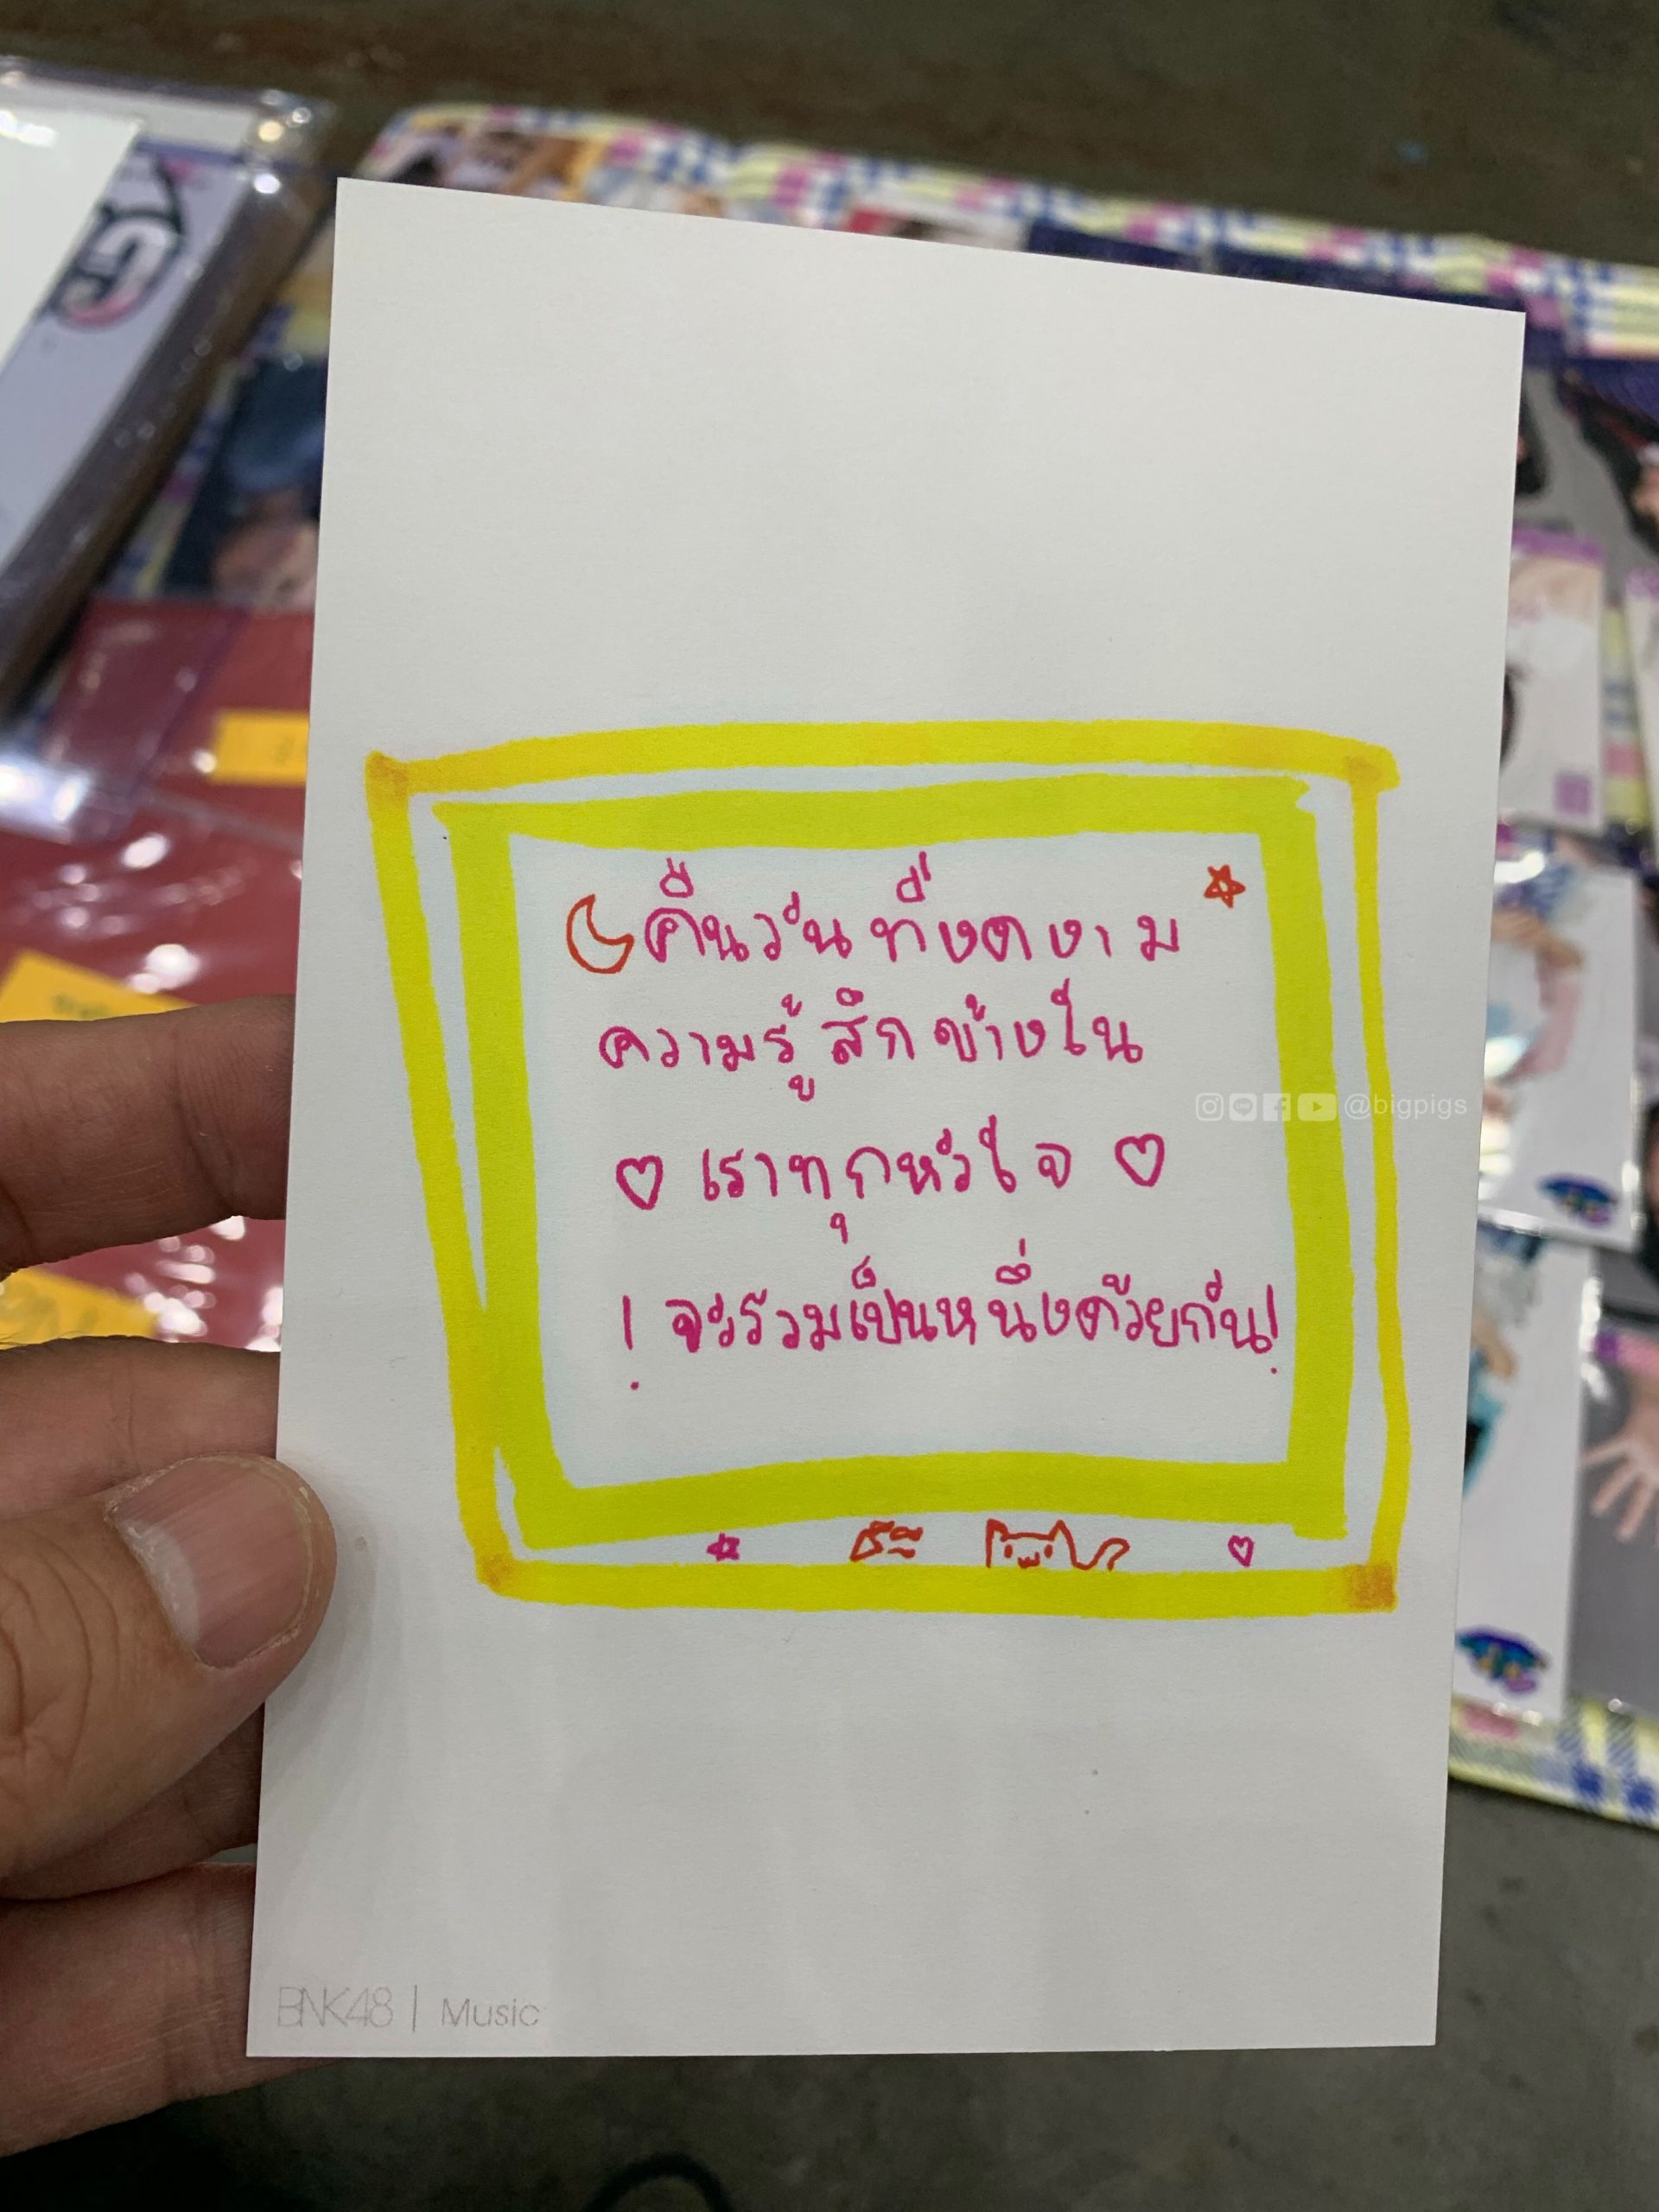 คืนวันที่งดงาม
ความรู้สึกข้างใน
♡ เราทุกหัวใจ ♡
! จะรวมเป็นหนึ่งด้วยกัน!
@bigpigs
BNK48 | Music